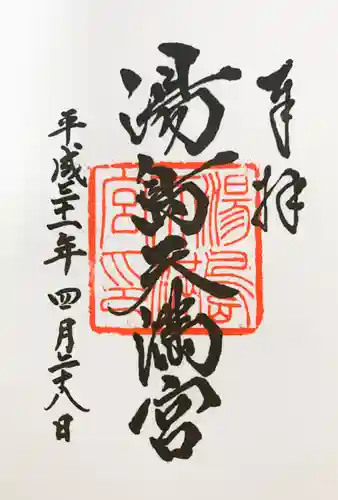 奉拝
湯島天満宮
平成三十一年 四月二十八日
湯島天満宮印